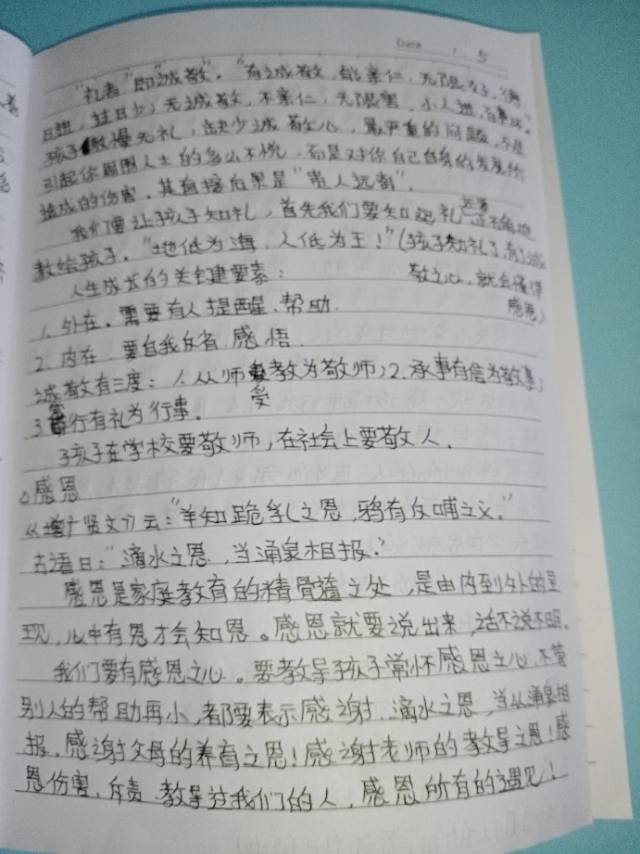 Date . 5
"礼者"即"诚敬"。"有诚敬,能亲仁,无限好,德
日进,过日少;无诚敬,不亲仁,无限害,小人进,百事坏。
孩子傲慢无礼,缺少诚敬心,最严重的问题,不是
引起你周围人士的多么不悦,而是对你自己自身的发展所
造成的伤害,其直接后果是"贵人远离"。
我们要让孩子知礼,首先我们要知起礼
教给孩子。"地低为海,人低为王!"(孩子知礼了,有了诚
敬之心,就会懂得
感恩)
人生成长的关键要素:
1. 外在,需要有人提醒、帮助.
2. 内在,要自我反省、感悟.
诚敬有三度:1.从师受教为敬师;2.承事有信为敬事;
3 行有礼为行事。
孩子在学校要敬师,在社会上要敬人.
感恩
《增广贤文》云:"羊知跪乳之恩,鸦有反哺之义。"
古语曰:"滴水之恩,当涌泉相报。"
感恩是家庭教育的精骨髓之处,是由内到外的呈
现,心中有恩才会知恩。感恩就要说出来,话不说不明。
我们要有感恩之心。要教导孩子常怀感恩之心,不管
别人的帮助再小,都要表示感谢.滴水之恩,当以涌泉相
报,感谢父母的养育之恩!感谢老师的教导之恩!感
恩伤害、斥责、教导过我们的人,感恩所有的遇见!